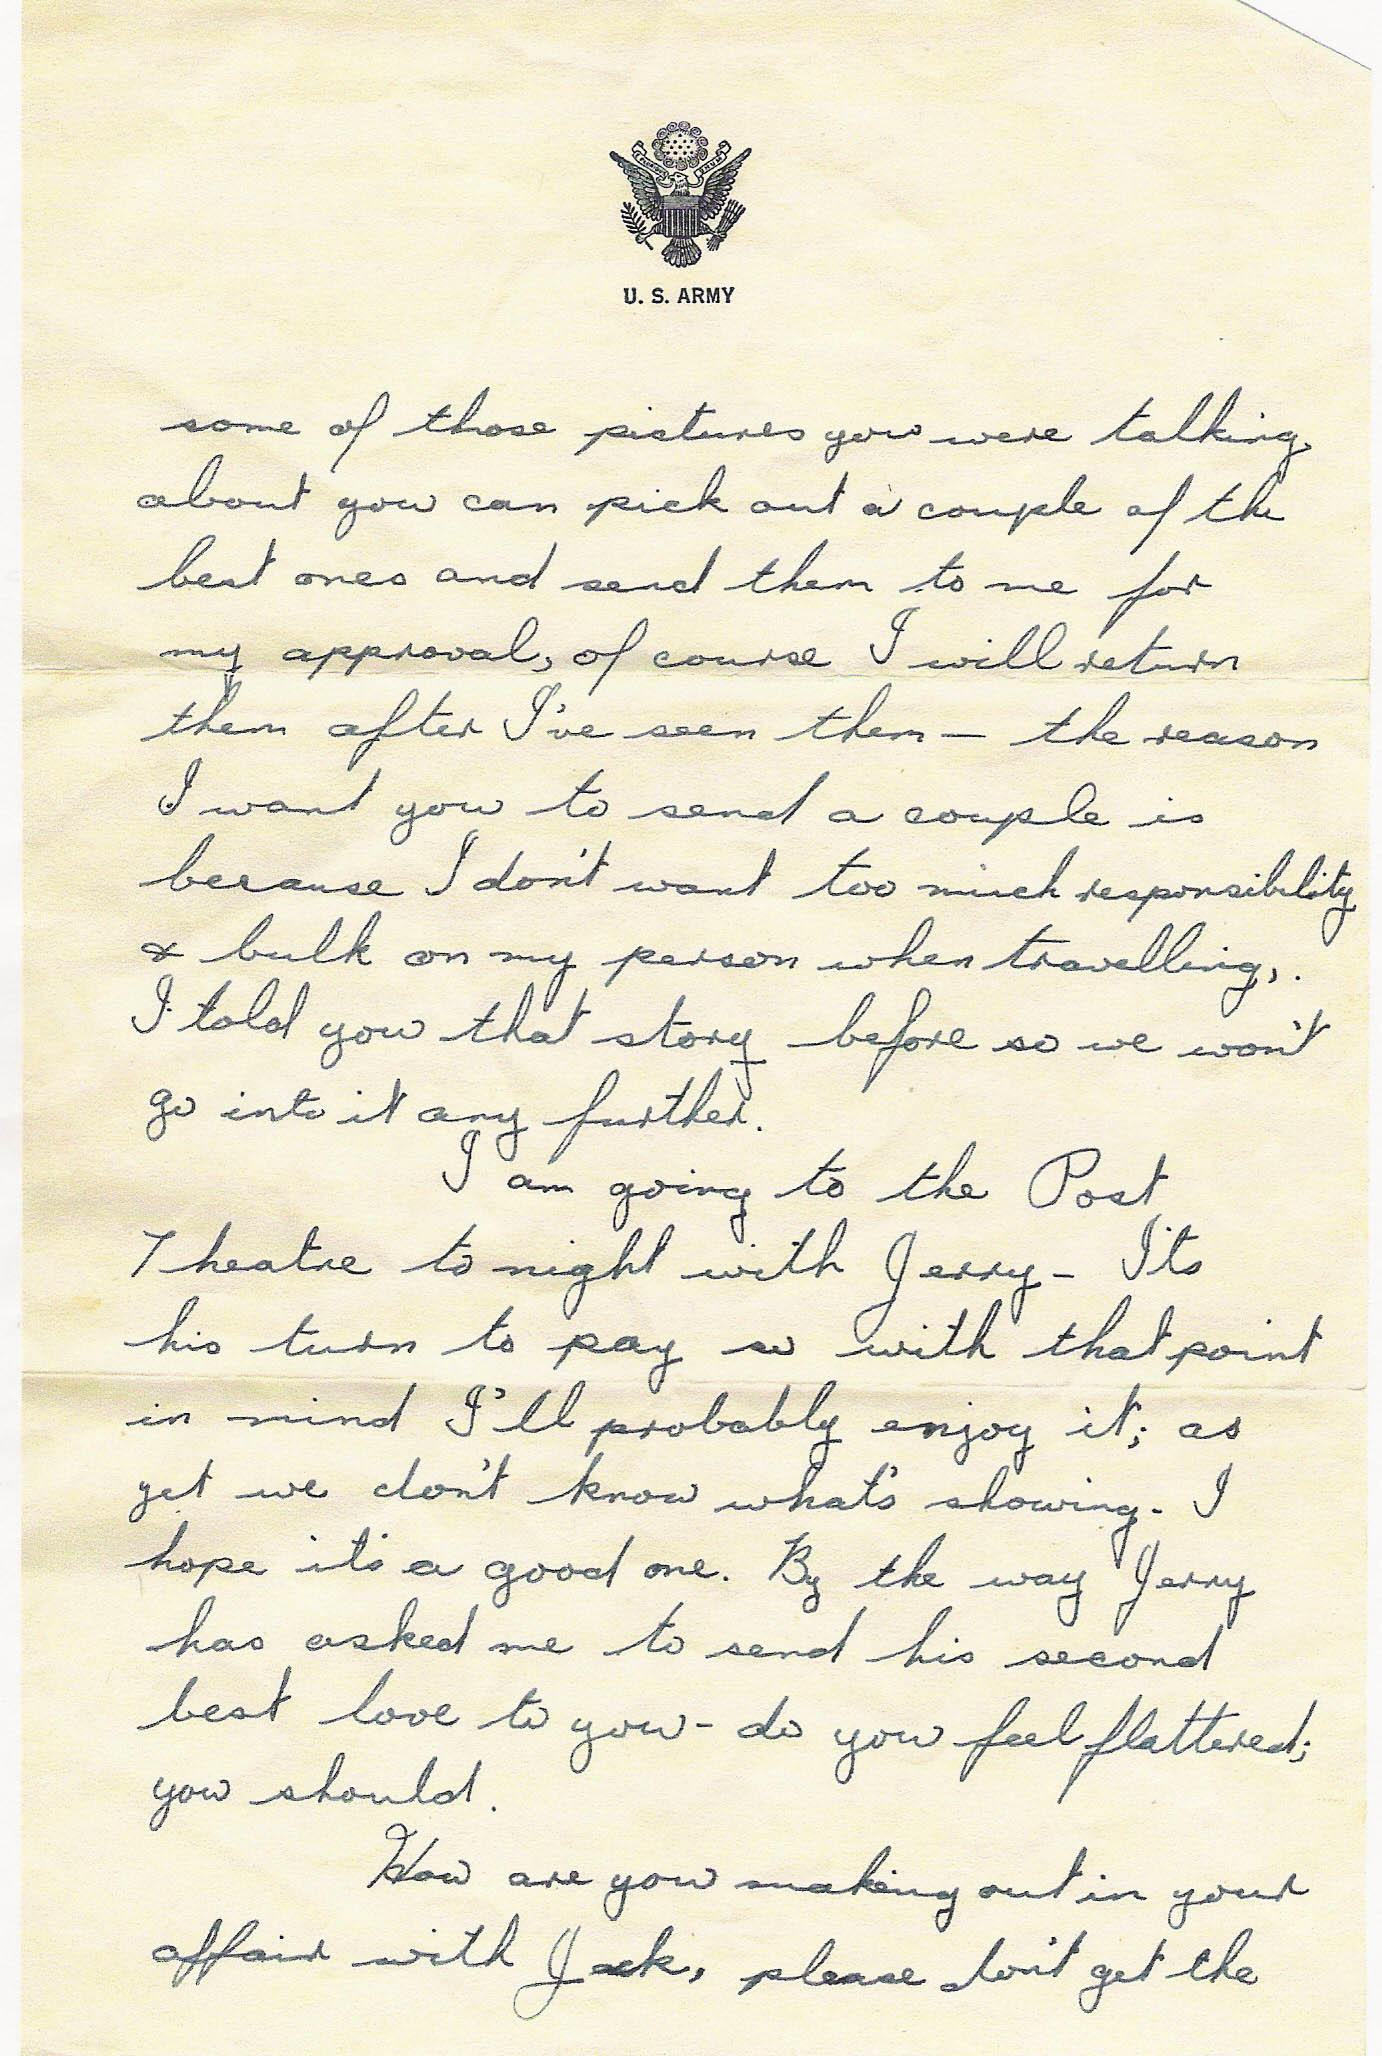 U. S. ARMY
some of those pictures you were talking
about you can pick out a couple of the
best ones and send them to me for
my approval, of course I will return
them after I've seen them — the reason
I want you to send a couple is
because I don't want too much responsibility
& bulk on my person when travelling,.
I told you that story before so we won't
go into it any further.
I am going to the Post
Theatre to night with Jerry - Its
his turn to pay so with that point
in mind I'll probably enjoy it; as
yet we don't know what's showing. I
hope it's a good one. By the way Jerry
has asked me to send his second
best love to you - do you feel flattered;
you should.
How are you making out in your
affair with Jack, please don't get the